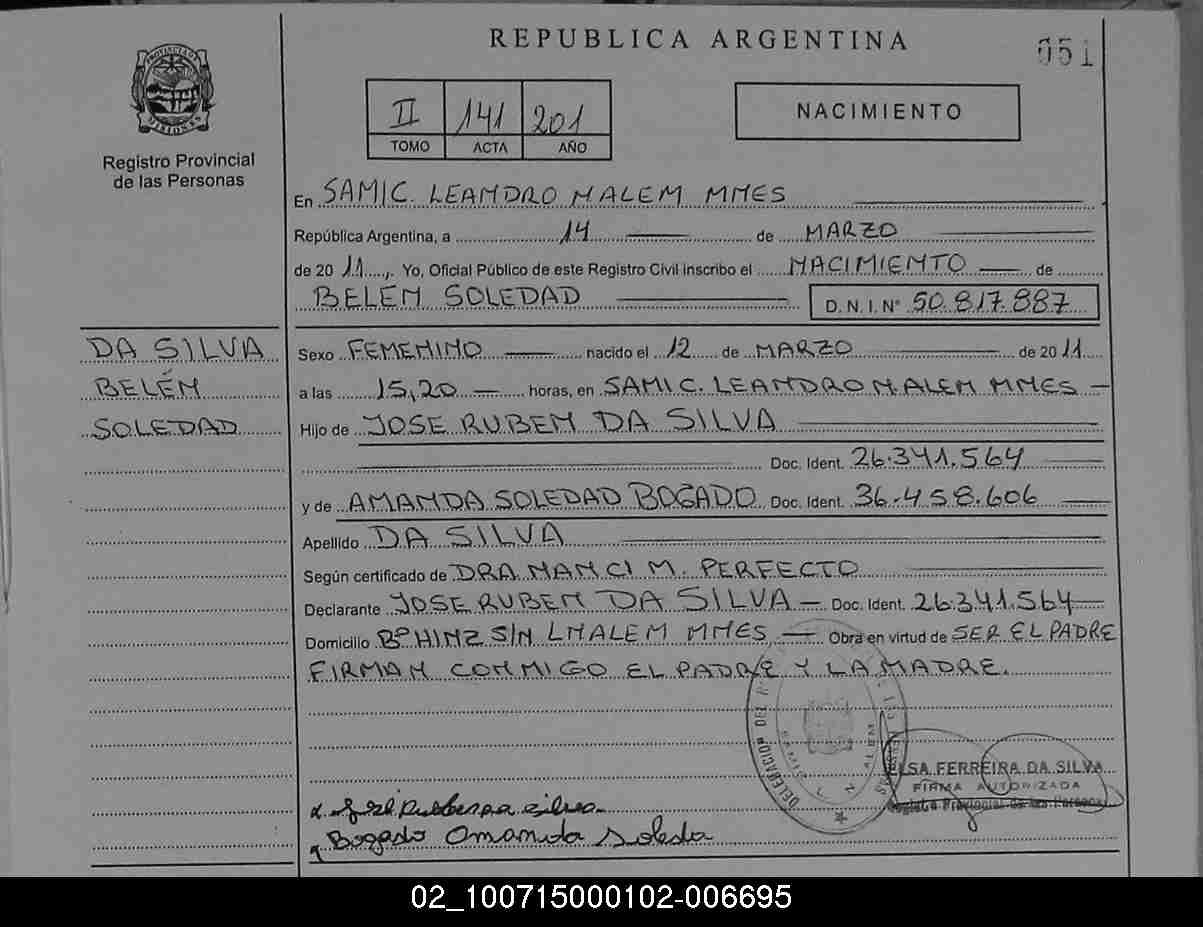 REPUBLICA ARGENTINA
051
PROVINCIA DE MISIONES
Registro Provincial
de las Personas
II 141 201
TOMO ACTA AÑO
NACIMIENTO
En SAMIC. LEANDRO N ALEM MNES
República Argentina, a 14 de MARZO
de 20 11, Yo, Oficial Público de este Registro Civil inscribo el NACIMIENTO de
BELÉN SOLEDAD D.N.I. Nº 50.817.887
DA SILVA
BELÉN
SOLEDAD
Sexo FEMENINO nacido el 12 de MARZO de 2011
a las 15,20 horas, en SAMIC. LEANDRO N. ALEM MNES
Hijo de JOSE RUBEN DA SILVA
Doc. Ident. 26.341.564
y de AMANDA SOLEDAD BOGADO Doc. Ident. 36.458.606
Apellido DA SILVA
Según certificado de DRA NANCI M. PERFECTO
Declarante JOSE RUBEN DA SILVA Doc. Ident. 26.341.564
Domicilio Bº HINZ S/N LNALEM MNES Obra en virtud de SER EL PADRE
FIRMAN CONMIGO EL PADRE Y LA MADRE.
DELEGACION DEL
ELSA FERREIRA DA SILVA
FIRMA AUTORIZADA
Registro Provincial de las Personas
Bogado Amanda Soleda
02_100715000102-006695